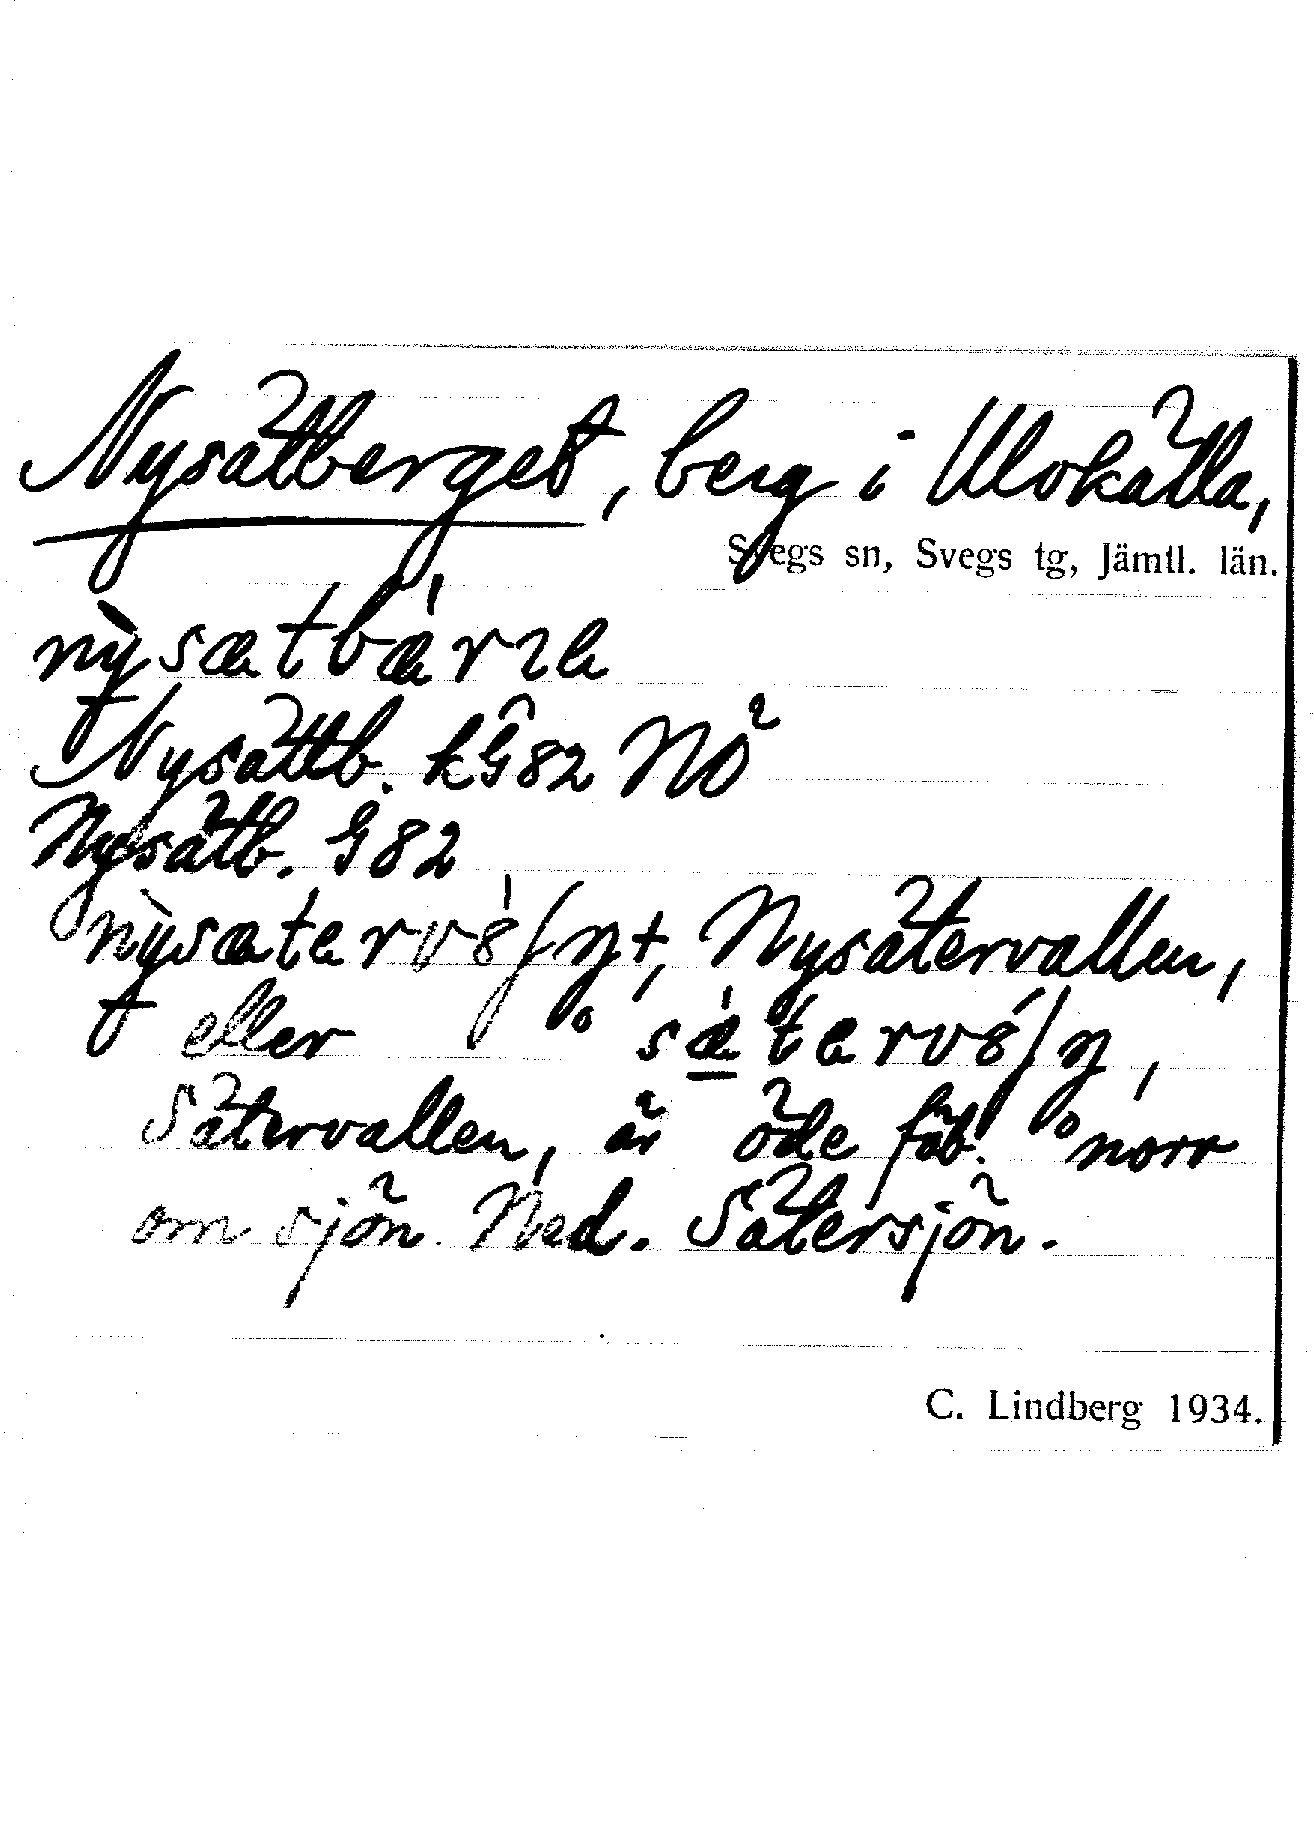 Nysätberget, berg i Ulvkälla,
Svegs sn, Svegs tg, Jämtl. län.
Nysättb. kG82 NÖ
Nysätb. G82
Nysätervallen,
eller
Sätervallen, är öde fäb. norr
om sjön Ned. Sätersjön.
C. Lindberg 1934.